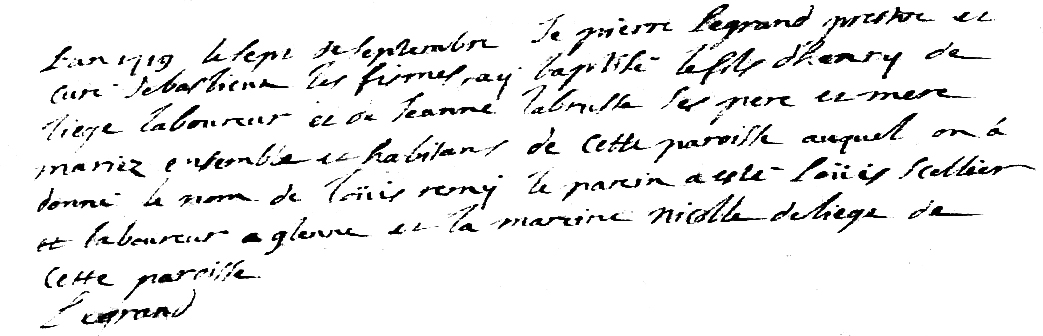 L'an 1719 le sept de septembre Je pierre Legrand prestre et
curé de bastieux les fismes ay baptisé le fils d'henry de
liege laboureur et de Jeanne labrusse ses pere et mere
mariez ensemble et habitans de cette paroisse auquel on à
donné le nom de loüis remy le parein a esté Loüis Scellier
laboureur a glenne et la mareine nicolle deliege de
Cette paroisse
Legrand